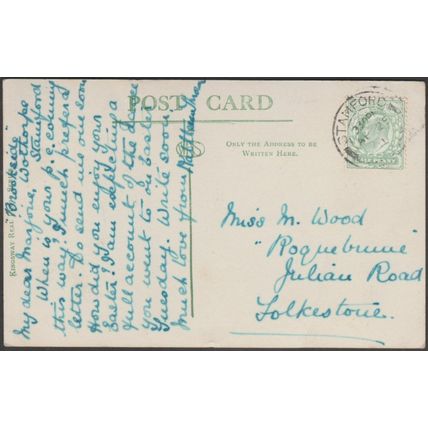 POST CARD
ONLY THE ADDRESS TO BE
WRITTEN HERE.
STAMFORD
KINGSWAY REAL
"Brookside"
Wothorpe
Stamford
My dear Marjorie,
When is your p.c. coming
this way. I much prefer a
letter. Do send me one soon
How did you enjoy your
Easter? I am expecting a
full account of the dance
you went to on Easter
Tuesday. Write soon.
Much love from
Miss M. Wood
"Roquebrune"
Julian Road
Folkestone.